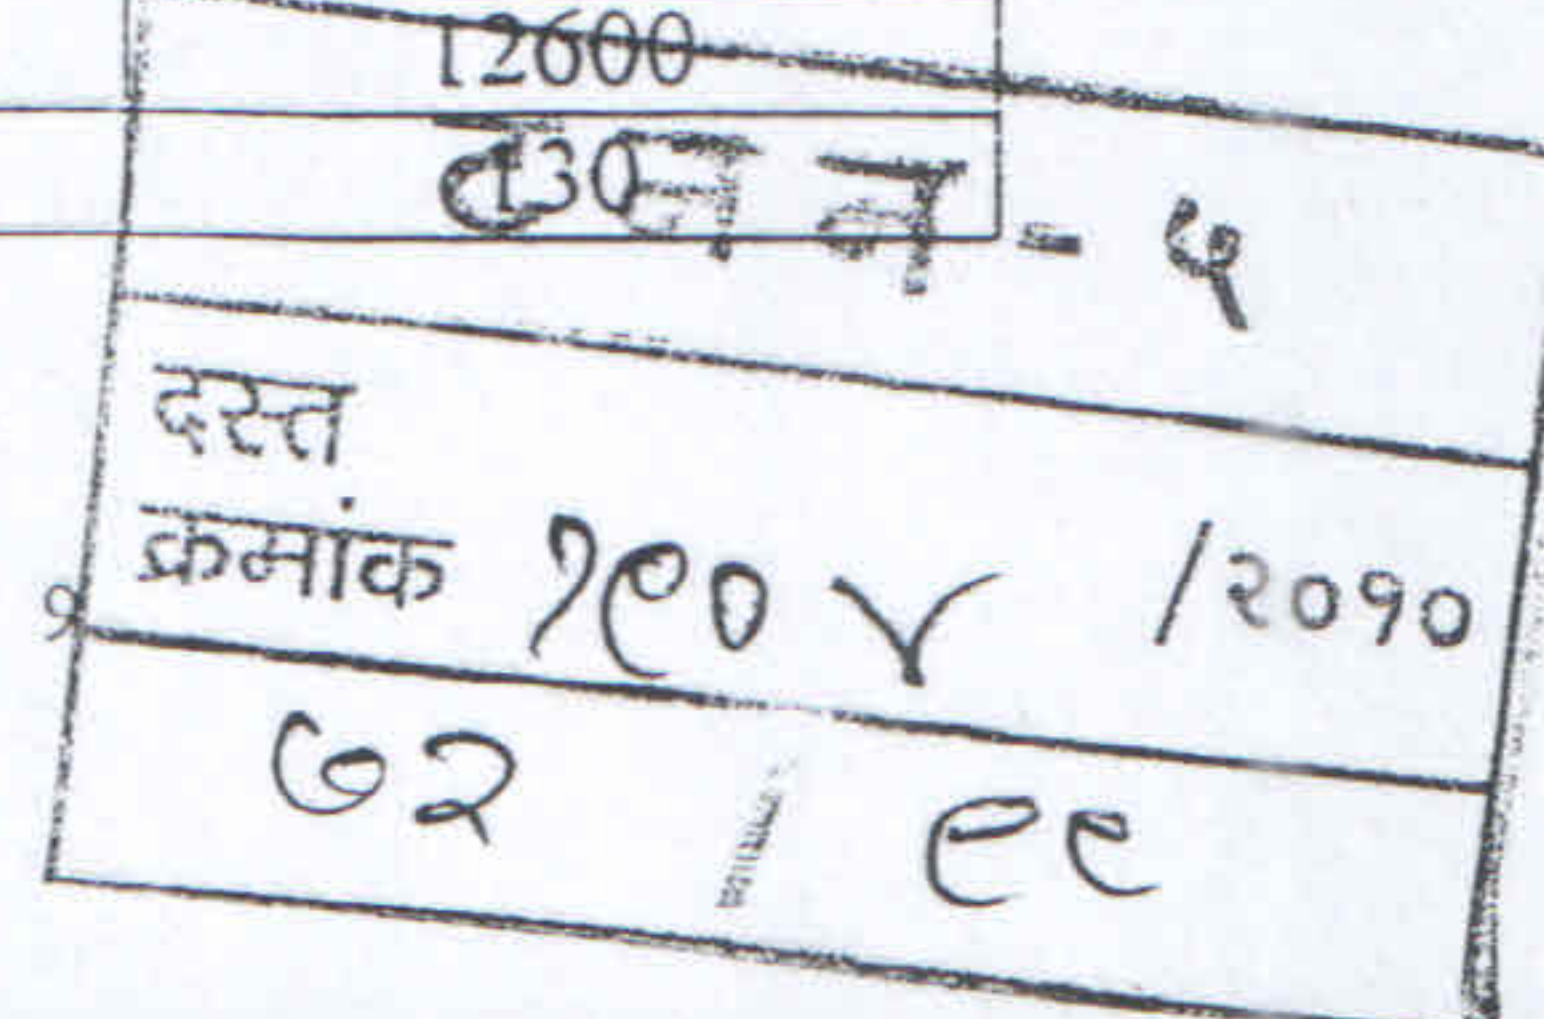 12600
130
ट न न - ५
दस्त
क्रमांक १९०४ /२०१०
७२ / ९९